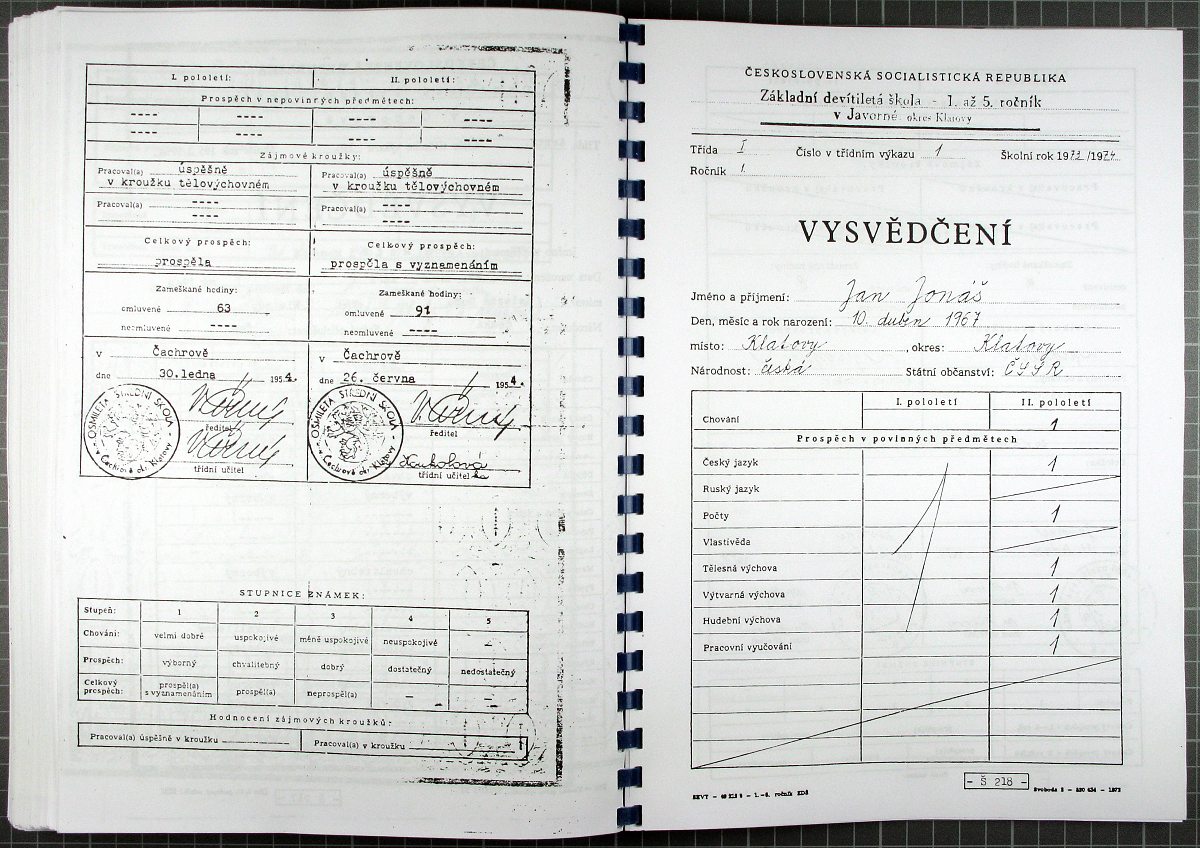 I. pololetí: II. pololetí:
Prospěch v nepovinných předmětech:
---- ---- ---- ----
---- ---- ---- ----
Zájmové kroužky:
Pracoval(a) úspěšně Pracoval(a) úspěšně
v kroužku tělovýchovném v kroužku tělovýchovném
Pracoval(a) ---- Pracoval(a) ----
---- ----
Celkový prospěch: Celkový prospěch:
prospěla prospěla s vyznamenáním
Zameškané hodiny: Zameškané hodiny:
omluvené 63 omluvené 91
neomluvené ---- neomluvené ----
v Čachrově v Čachrově
dne 30.ledna 1954. dne 26. června 1954.
OSMILETÁ STŘEDNÍ ŠKOLA v Čachrově okr. Klatovy OSMILETÁ STŘEDNÍ ŠKOLA v Čachrově okr. Klatovy
ředitel ředitel
třídní učitel třídní učitelka
STUPNICE ZNÁMEK:
Stupeň: 1 2 3 4 5
Chování: velmi dobré uspokojivé méně uspokojivé neuspokojivé —
Prospěch: výborný chvalitebný dobrý dostatečný nedostatečný
Celkový prospěch: prospěl(a) s vyznamenáním prospěl(a) neprospěl(a) — —
Hodnocení zájmových kroužků:
Pracoval(a) úspěšně v kroužku Pracoval(a) v kroužku
ČESKOSLOVENSKÁ SOCIALISTICKÁ REPUBLIKA
Základní devítiletá škola - 1. až 5. ročník
v Javorné okres Klatovy
Třída I Číslo v třídním výkazu 1 Školní rok 1973/1974
Ročník 1.
VYSVĚDČENÍ
Jméno a příjmení: Jan Jonáš
Den, měsíc a rok narození: 10. duben 1967
místo: Klatovy, okres: Klatovy
Národnost: česká Státní občanství: ČSSR
I. pololetí II. pololetí
Chování 1
Prospěch v povinných předmětech
Český jazyk 1
Ruský jazyk
Počty 1
Vlastivěda
Tělesná výchova 1
Výtvarná výchova 1
Hudební výchova 1
Pracovní vyučování 1
- Š 218 -